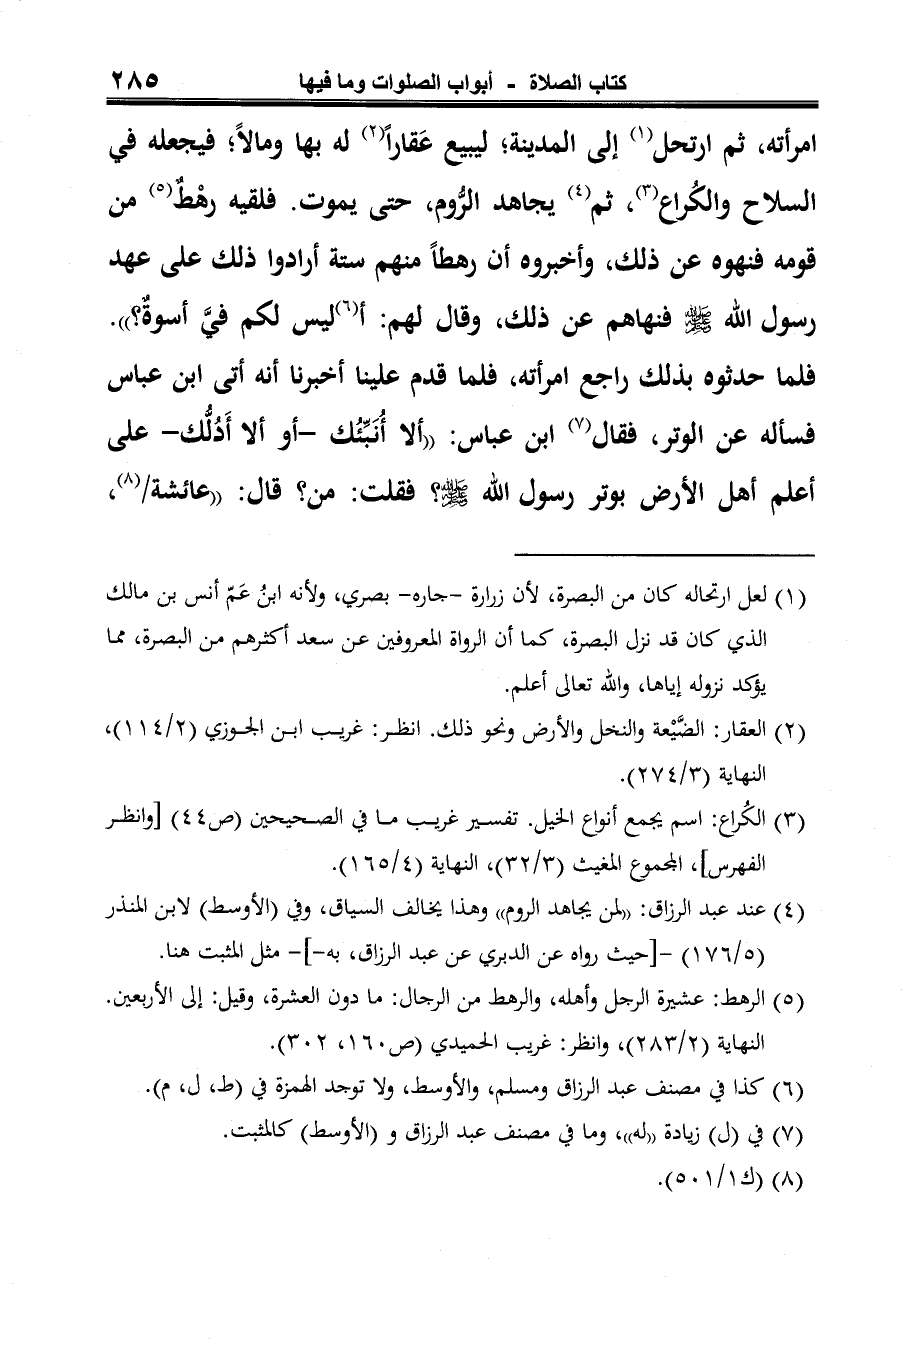 كتاب الصلاة - أبواب الصلوات وما فيها ٢٨٥
امرأته، ثم ارتحل(١) إلى المدينة؛ ليبيع عَقاراً(٢) له بها ومالاً؛ فيجعله في
السلاح والكُراع(٣)، ثم(٤) يجاهد الرُّوم، حتى يموت. فلقيه رهْطٌ(٥) من
قومه فنهوه عن ذلك، وأخبروه أن رهطاً منهم ستة أرادوا ذلك على عهد
رسول الله ﷺ فنهاهم عن ذلك، وقال لهم: أ(٦)ليس لكم فيَّ أسوةٌ؟)).
فلما حدثوه بذلك راجع امرأته، فلما قدم علينا أخبرنا أنه أتى ابن عباس
فسأله عن الوتر، فقال(٧) ابن عباس: ((ألا أُنَبِّئُك -أو ألا أَدُلُّك- على
أعلم أهل الأرض بوتر رسول الله ﷺ؟ فقلت: من؟ قال: ((عائشة/(٨)،
(١) لعل ارتحاله كان من البصرة، لأن زرارة -جاره- بصري، ولأنه ابنُ عَمّ أنس بن مالك
الذي كان قد نزل البصرة، كما أن الرواة المعروفين عن سعد أكثرهم من البصرة، مما
يؤكد نزوله إياها، والله تعالى أعلم.
(٢) العقار: الضَّيْعة والنخل والأرض ونحو ذلك. انظر: غريب ابن الجوزي (١١٤/٢)،
النهاية (٢٧٤/٣).
(٣) الكُراع: اسم يجمع أنواع الخيل. تفسير غريب ما في الصحيحين (ص٤٤) [وانظر
الفهرس]، المجموع المغيث (٣٢/٣)، النهاية (١٦٥/٤).
(٤) عند عبد الرزاق: ((لمن يجاهد الروم)) وهذا يخالف السياق، وفي (الأوسط) لابن المنذر
(١٧٦/٥) -[حيث رواه عن الدبري عن عبد الرزاق، به-]- مثل المثبت هنا.
(٥) الرهط: عشيرة الرجل وأهله، والرهط من الرجال: ما دون العشرة، وقيل: إلى الأربعين.
النهاية (٢٨٣/٢)، وانظر: غريب الحميدي (ص١٦٠، ٣٠٢).
(٦) كذا في مصنف عبد الرزاق ومسلم، والأوسط، ولا توجد الهمزة في (ط، ل، م).
(٧) في (ل) زيادة ((له))، وما في مصنف عبد الرزاق و (الأوسط) كالمثبت.
(٨) (ك٥٠١/١).